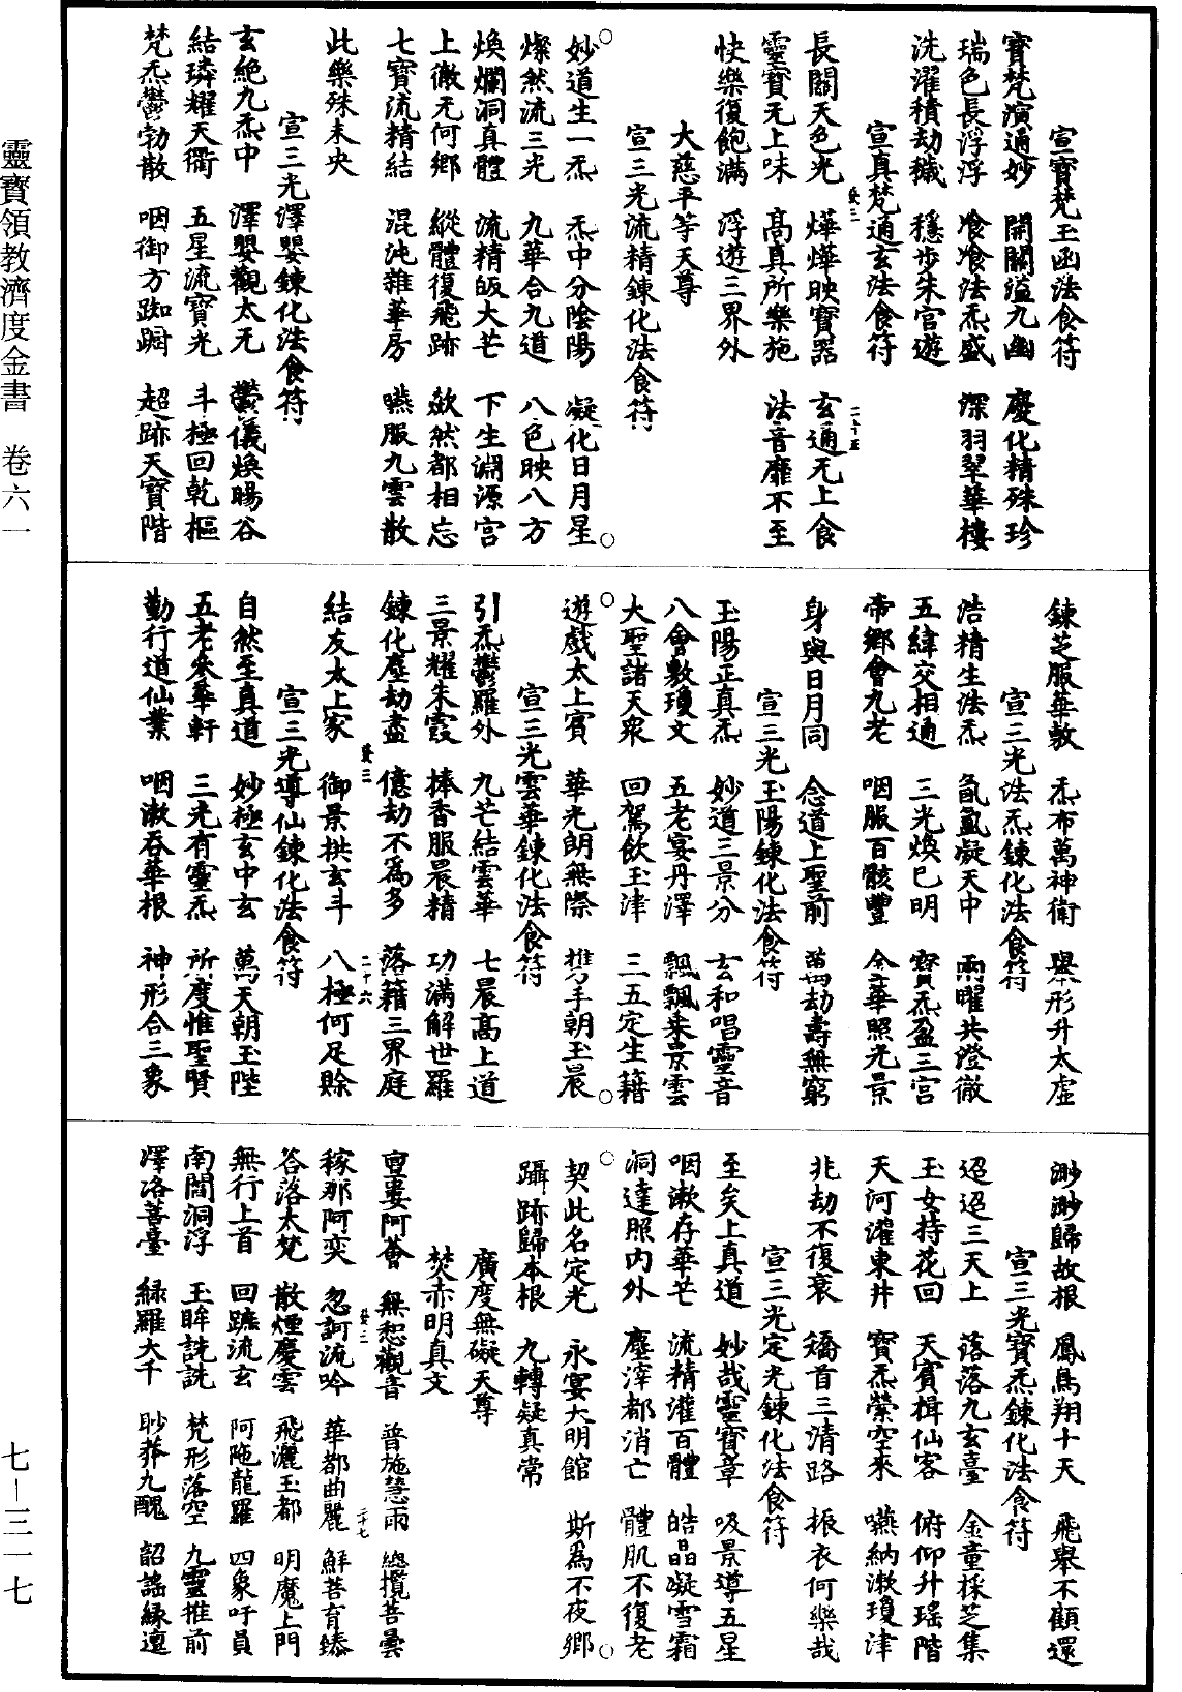 宣寶梵玉函法食符
寶梵演通妙　開關溢九幽　慶化精殊珍
瑞色長浮浮　飡飡法炁盛　深羽翠華樓
洗濯積劫穢　穩步朱宮遊
宣真梵通玄法食符
長闊天色光　燁燁映寶器　玄通无上食
靈寶无上味　高真所樂施　法音靡不至
快樂復飽滿　浮遊三界外
大慈平等天尊
宣三光流精鍊化法食符
○妙道生一炁　炁中分陰陽　凝化日月星○
燦然流三光　九華合九道　八色映八方
煥爛洞真體　流精皈大芒　下生淵源宮
上徹无何鄉　縱體復飛跡　欻然都相忘
七寶流精結　混沌雜華房　嚥服九雲散
此樂殊未央
宣三光澤嬰鍊化法食符
玄絶九炁中　澤嬰觀太无　鬱儀煥暘谷
結璘耀天衢　五星流寶光　斗極回乾樞
梵炁鬱勃散　咽御方踟躕　超跡天寶階
鍊芝服華敷　炁布萬神衛　舉形升太虛
宣三光浩炁鍊化法食符
浩精生法炁　氤氳凝天中　兩曜共澄徹
五緯交相通　三光煥已明　寶炁盈三宮
帝鄉會九老　咽服百骸豐　金華照光景
身與日月同　念道上聖前　萬劫壽無窮
宣三光玉陽鍊化法食符
玉陽正真炁　妙道三景分　玄和唱靈音
八會敷瓊文　五老宴丹澤　飄飄乘景雲
大聖諸天眾　回駕飲玉津　三五定生籍
○遊戲太上賓　華光朗無際　攜手朝玉晨○
宣三光雲華鍊化法食符
引炁鬱羅外　九芒結雲華　七晨高上道
三景耀朱霞　捧香服晨精　功滿解世羅
鍊化塵劫盡　億劫不為多　落籍三界庭
結友太上家　御景拱玄斗　八極何足賒
宣三光導仙鍊化法食符
自然至真道　妙極玄中玄　萬天朝玉陛
五老參華軒　三光有靈炁　所度惟聖賢
勤行道仙業　咽漱吞華根　神形合三象
渺渺歸故根　鳳鳥翔十天　飛舉不顧還
宣三光寶炁鍊化法食符
迢迢三天上　落落九玄臺　金童採芝集
玉女持花回　天賓揖仙客　俯仰升瑤階
天河濯東井　寶炁縈空來　嚥納漱瓊津
兆劫不復衰　矯首三清路　振衣何樂哉
宣三光定光鍊化法食符
至矣上真道　妙哉靈寶章　吸景導五星
咽漱存華芒　流精灌百體　皓晶凝雪霜
洞達照內外　塵滓都消亡　體肌不復老
○契此名定光　永宴大明館　斯為不夜鄉○
躡跡歸本根　九轉疑真常
廣度無礙天尊
焚赤明真文
亶婁阿薈　無惒觀音　普施慧雨　總攬菩曇
稼那阿奕　忽訶流吟　華都曲麗　鮮菩育臻
荅落太梵　散煙慶雲　飛灑玉都　明魔上門
無行上首　回蹠流玄　阿陁龍羅　四象吁員
南閻洞浮　玉眸詵詵　梵形落空　九靈推前
澤洛菩臺　緑羅大千　眇莽九醜　韶謠緣邅
靈寶領教濟度金書　卷六一
七—三一七